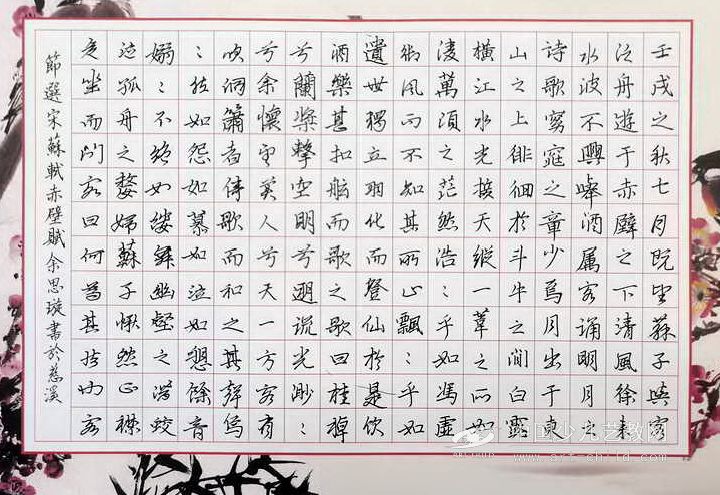 壬戌之秋七月既望蘇子與客
泛舟遊于赤壁之下清風徐來
水波不興舉酒属客誦明月之
詩歌窈窕之章少焉月出于東
山之上徘徊於斗牛之間白露
横江水光接天縱一葦之所如
淩萬頃之茫然浩:乎如馮虚
御風而不知其所止飄:乎如
遺世獨立羽化而登仙於是饮
酒樂甚扣舷而歌之歌曰桂棹
兮蘭槳擊空明兮遡流光渺:
兮余懷望美人兮天一方客有
吹洞簫者倚歌而和之其聲嗚
:然如怨如慕如泣如愬餘音
嫋:不絶如縷舞幽壑之潜蛟
泣孤舟之嫠婦蘇子愀然正襟
危坐而问客曰何爲其然也客
節選宋蘇軾赤壁賦余思璇書於慈溪
中国少儿艺教网
www.art-child.com